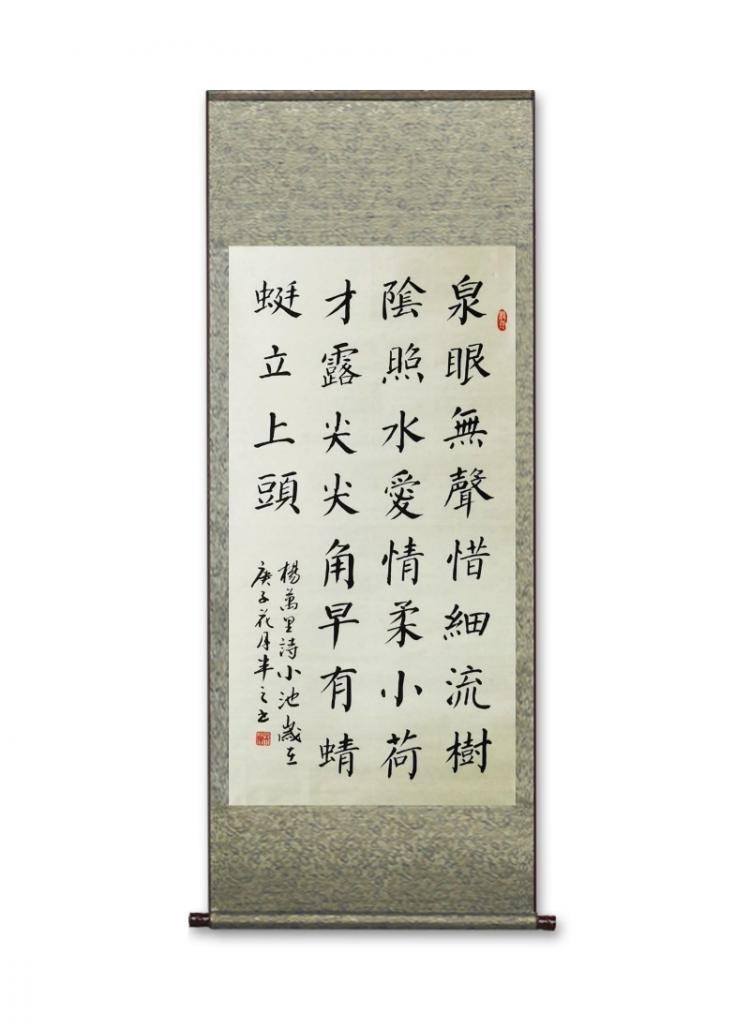 泉眼無聲惜細流樹
陰照水愛情柔小荷
才露尖尖角早有蜻
蜓立上頭
楊萬里詩小池歲在
庚子花月半之書